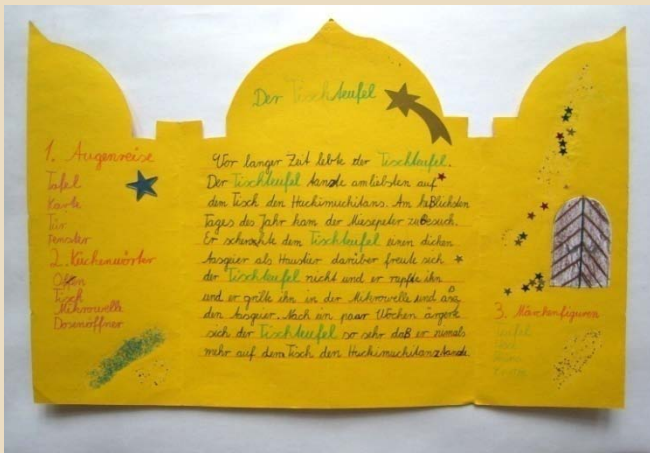 Der Tischteufel
1. Augenreise
Tafel
Karte
Tür
Fenster
2. Küchenwörter
Ofen
Tisch
Mikrowelle
Dosenöffner
Vor langer Zeit lebte der Tischteufel.
Der Tischteufel tanzte am liebsten auf
dem Tisch den Huckimuckitans. Am heßlichsten
Tages des Jahr kam der Miesepeter zu Besuch.
Er schenkte dem Tischteufel einen dicken
Aasgeier als Haustier darüber freute sich
der Tischteufel nicht und er rupfte ihn
und er grilte ihn in der Mikrowelle und aß
den Aasgeier. Nach ein paar Wochen ärgerte
sich der Tischteufel so sehr daß er niemals
mehr auf dem Tisch den Huckimuckitanz tanzte
3. Märchenfiguren
Teufel